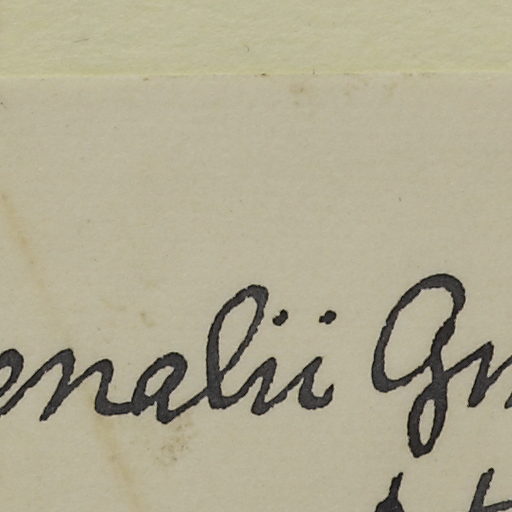 enalii Gm